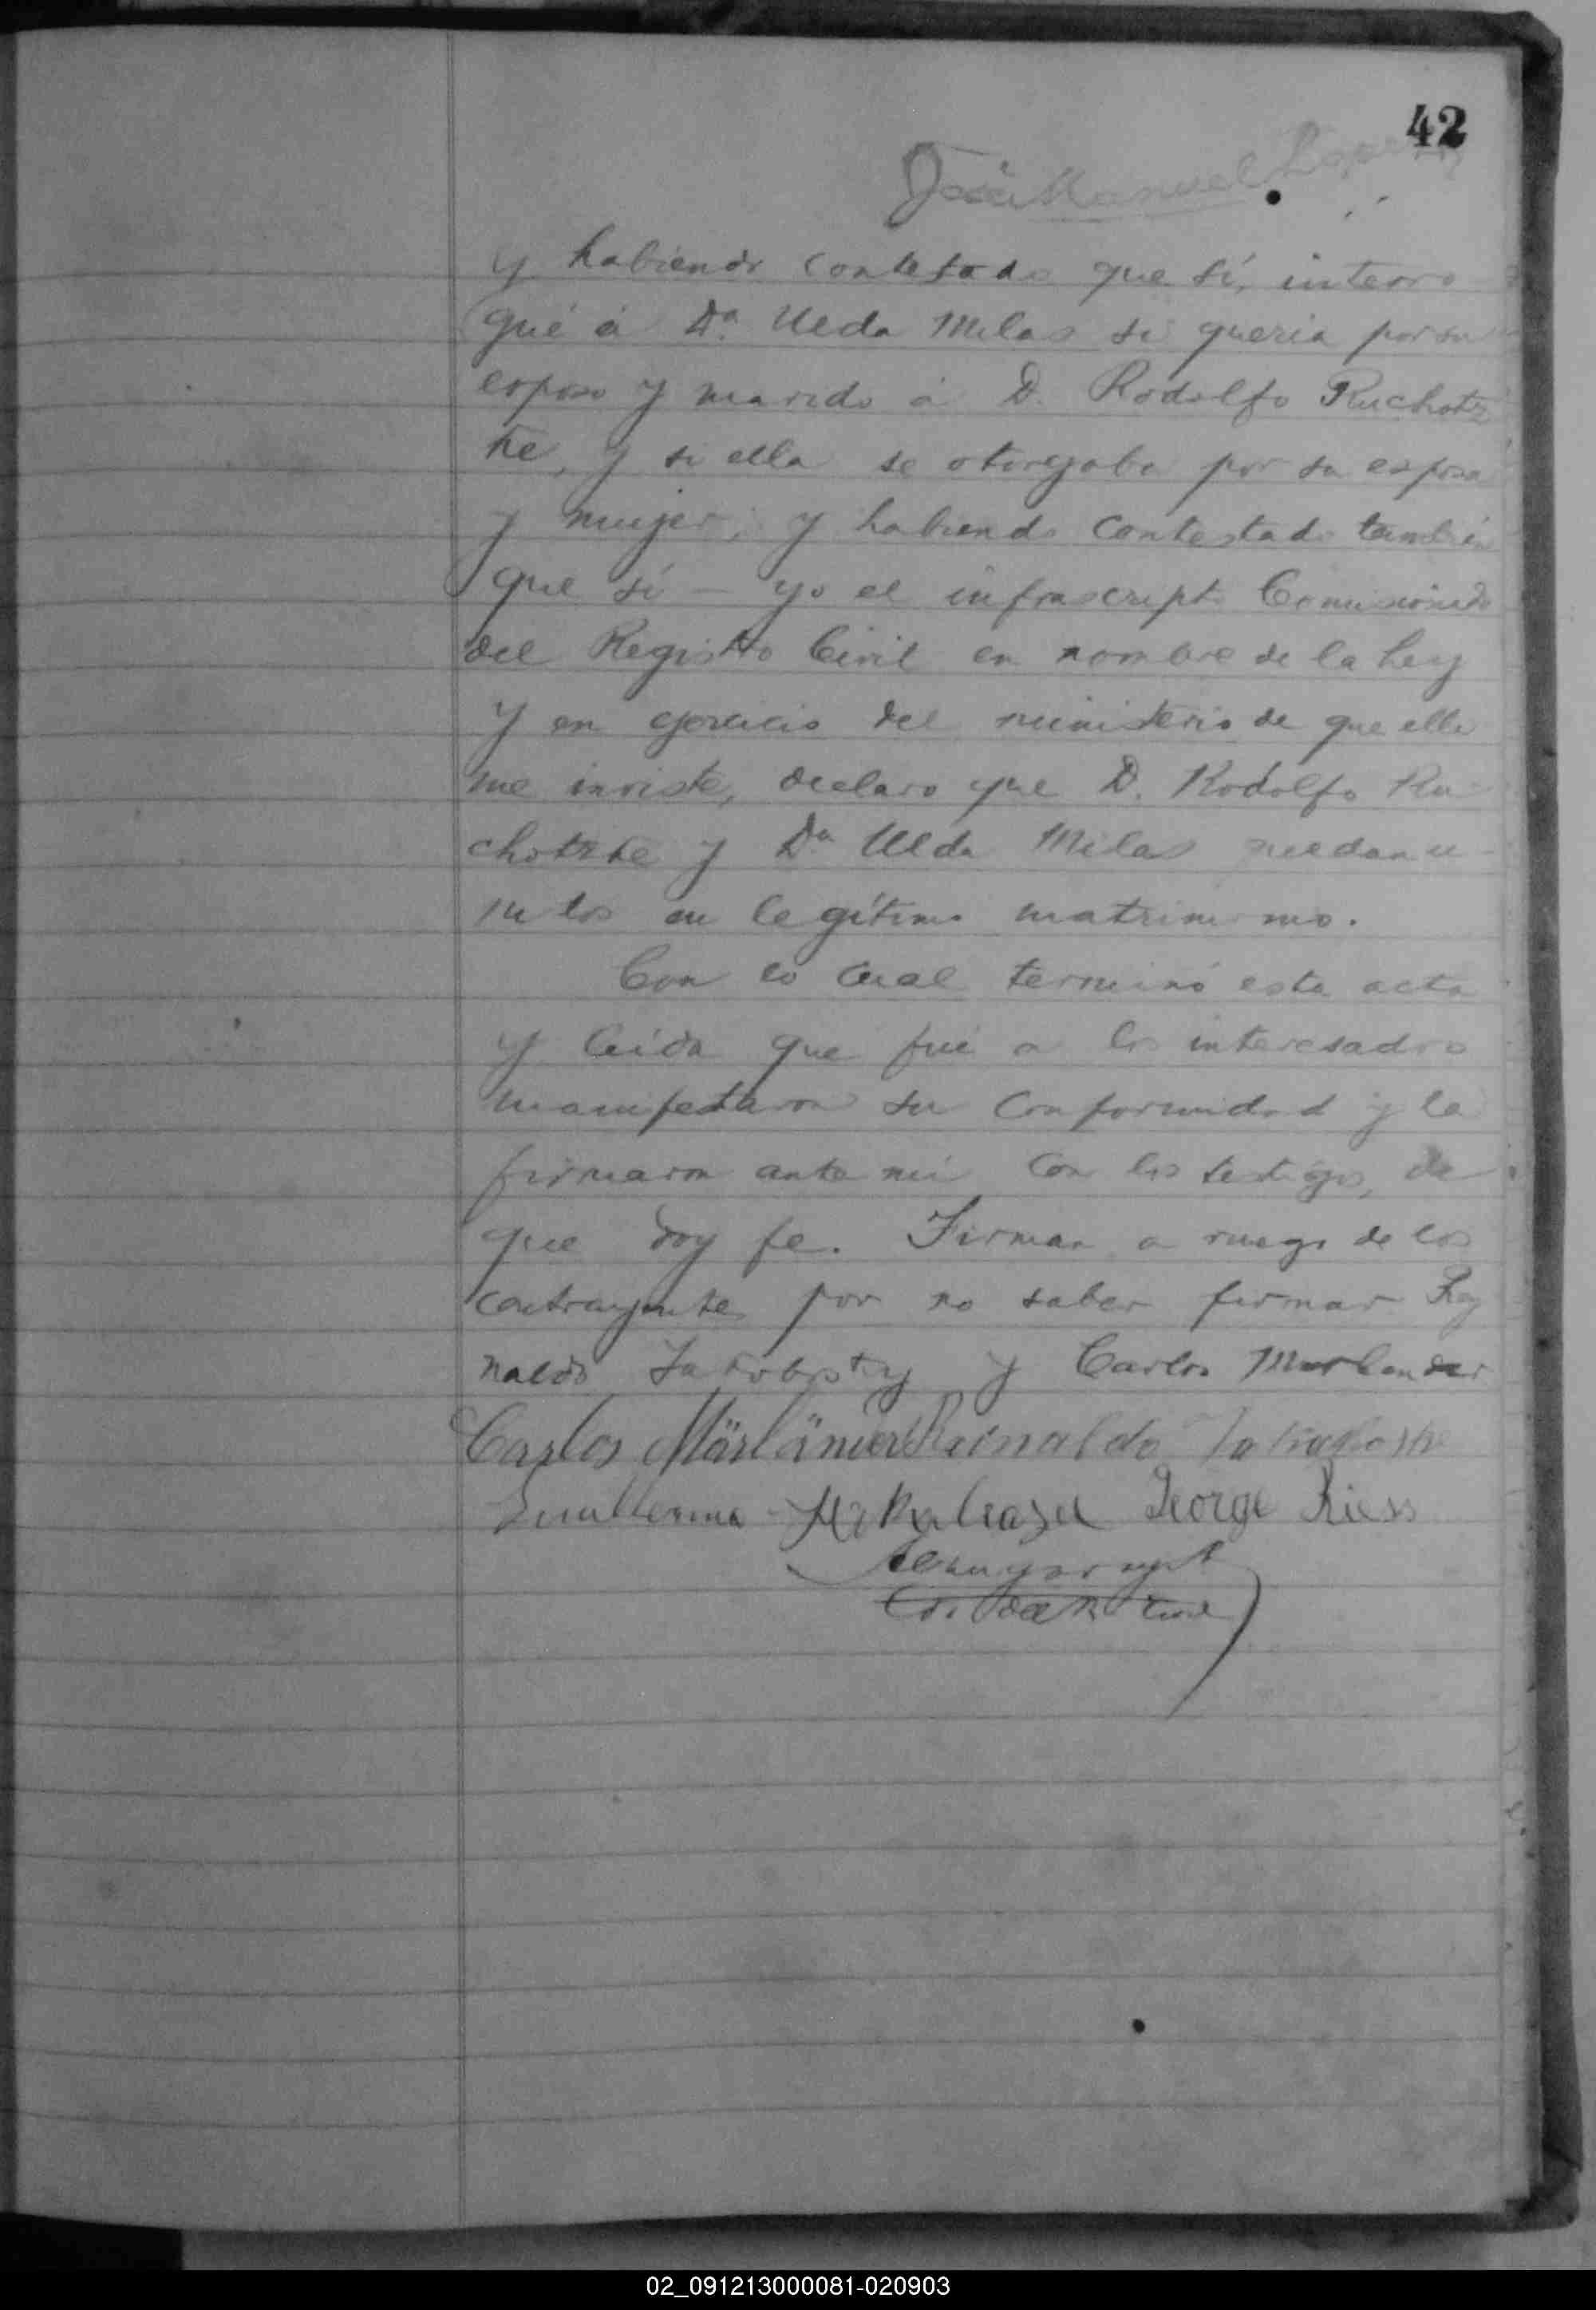 42
José Manuel
y habiendo contestado que sí, interro
gué á Dª Ulda Milas si queria por su
esposo y marido á D. Rodolfo Ruchotz
ke, y si ella se otorgaba por su esposa
y mujer, y habiendo contestado también
que sí — yo el infrascripto Comisionado
del Registro Civil en nombre de la Ley
y en ejercicio del ministerio de que ella
me inviste, declaro que D. Rodolfo Ru
chotzke y Dª Ulda Milas quedan u-
nidos en legítimo matrimonio.
Con lo cual terminó esta acta
y leída que fué a los interesados
manifestaron su conformidad y la
firmaron ante mi con los testigos, de
que doy fe. Firman a ruego de los
contrayentes por no saber firmar Rey
naldo y Carlos Marlander
Carlos Märländer Reinaldo
Guillermo George Riess
02_091213000081-020903